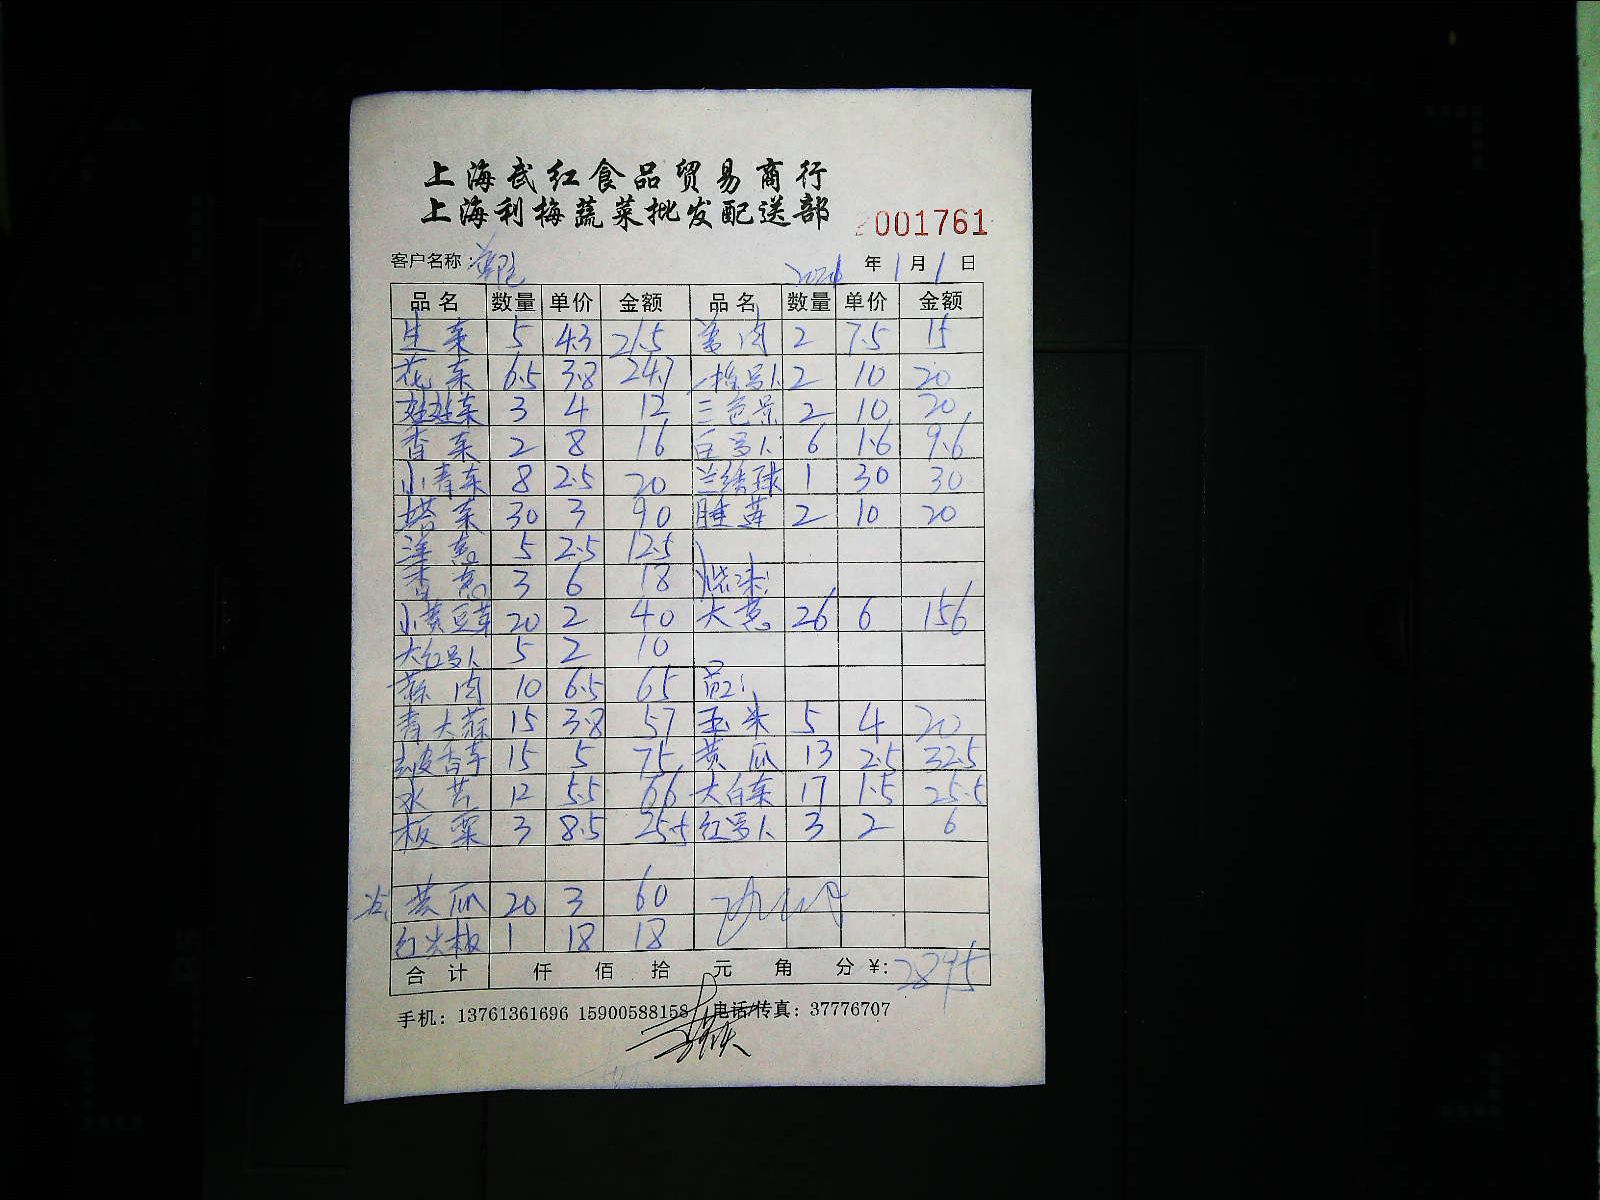 上海武红食品贸易商行
上海利梅蔬菜批发配送部
001761
客户名称: 年 1 月 1 日
品名 数量 单价 金额 品名 数量 单价 金额
生菜 5 4.3 21.5 姜肉 2 7.5 15
花菜 6.5 3.8 24.7 2 10 20
娃娃菜 3 4 12 三色堇 2 10 20
香菜 2 8 16 白萝卜 6 1.6 9.6
小青菜 8 2.5 20 兰绣球 1 30 30
塔菜 30 3 90 睡莲 2 10 20
洋葱 5 2.5 12.5
香葱 3 6 18
小黄豆芽 20 2 40 大葱 26 6 156
大红萝卜 5 2 10
蒜肉 10 6.5 65
青大蒜 15 3.8 57 玉米 5 4 20
去皮香芋 15 5 75 黄瓜 13 2.5 32.5
水芹 12 5.5 66 大白菜 17 1.5 25.5
板栗 3 8.5 25.5 红萝卜 3 2 6
黄瓜 20 3 60
红尖椒 1 18 18
合计 仟 佰 拾 元 角 分 ¥: 2895
手机: 13761361696 15900588158 电话/传真: 37776707